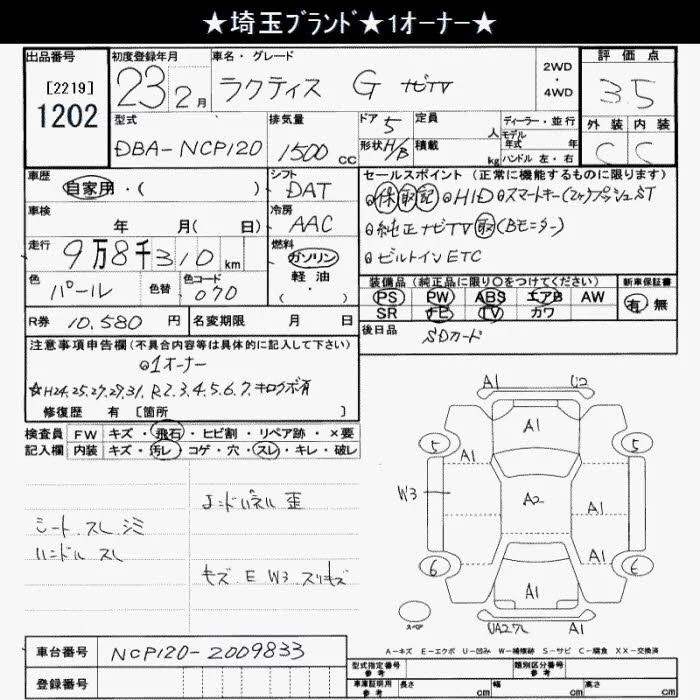 ★埼玉ﾌﾞﾗﾝﾄﾞ★1オーナー★
出品番号 [2219] 1202
初度登録年月 23年 2月
車名・グレード ラクティス G ナビTV
2WD・4WD
評価点 3.5
外装 C 内装 C
型式 DBA-NCP120
排気量 1500 cc
ドア 5
形状 H/B
定員 人
積載 kg
ディーラー・並行
モデル年式 年
ハンドル 左・右
車歴 自家用・( )
シフト DAT
車検 年 月( 日)
冷房 AAC
走行 9万8千310 km
燃料 ガソリン 軽・油 ( ・ )
色 パール 色替 色コード 070
R券 10,580 円 名変期限 月 日
セールスポイント(正常に機能するものに限ります)
◎保取記◎HID◎スマートキー(2ヶ)プッシュST
◎純正ナビTV取(Bモニター)
◎ビルトインETC
装備品(純正品に限り○をつけてください)
PS PW ABS エアB AW
SR TV カワ
新車保証書 有 無
後日品 SDカード
注意事項申告欄(不具合内容等は具体的に記入して下さい)
◎1オーナー
☆H24.25.27.29.31. R2.3.4.5.6.7.キロクボ有
修復歴 有 [箇所 ]
検査員記入欄
FW キズ・飛石・ヒビ割・リペア跡・×要
内装 キズ・汚レ・コゲ・穴・スレ・キレ・破レ
シート スレ シミ
ハンドル スレ
歪
キズ E W3 スリキズ
A1
A1
5 5
A1
W3 A2 A1
6 6
A1
A1
A1
スペア
A-キズ E-エクボ U-凹み W-補修跡 S-サビ C-腐食 XX-交換済
車台番号 NCP120-2009833
登録番号
型式指定番号 参考 類別区分番号 参考
車庫証明用 参考 長さ cm 幅 cm 高さ cm